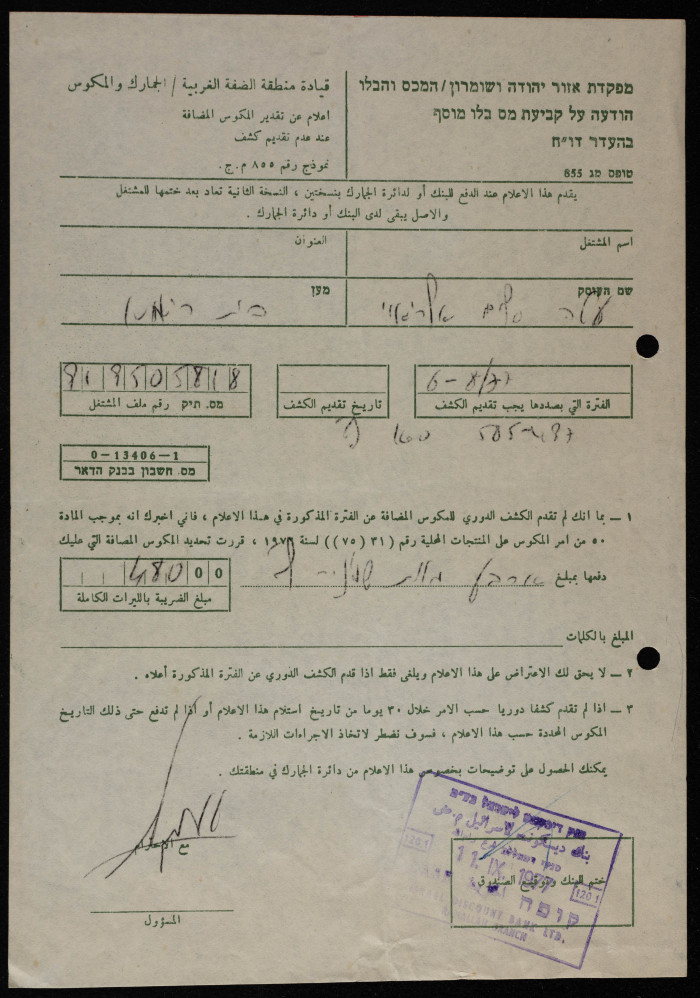 מפקדת אזור יהודה ושומרון/המכס והבלו
הודעה על קביעת מס בלו מוסף
בהעדר דו"ח
טופס מג 855
قيادة منطقة الضفة الغربية / الجمارك والمكوس
اعلام عن تقدير المكوس المضافة
عند عدم تقديم كشف
نموذج رقم ٨٥٥ م.ج.
يقدم هذا الاعلام عند الدفع للبنك أو لدائرة الجمارك بنسختين ، النسخة الثانية تعاد بعد ختمها للمشتغل
والاصل يبقى لدى البنك أو دائرة الجمارك .
اسم المشتغل
العنوان
שם העוסק
מען
6-8/77
الفترة التي بصددها يجب تقديم الكشف
تاريخ تقديم الكشف
919505818
מס. תיק رقم ملف المشتغل
0-13406-1
מס. חשבון בבנק הדאר
١ — بما انك لم تقدم الكشف الدوري للمكوس المضافة عن الفترة المذكورة في هذا الاعلام ، فاني اخبرك انه بموجب المادة
٥٠ من امر المكوس على المنتجات المحلية رقم (٣١ (٧٥)) لسنة ١٩٧٦ ، قررت تحديد المكوس المضافة التي عليك
دفعها بمبلغ
48000
مبلغ الضريبة بالليرات الكاملة
المبلغ بالكلمات
٢ — لا يحق لك الاعتراض على هذا الاعلام ويلغى فقط اذا قدم الكشف الدوري عن الفترة المذكورة أعلاه .
٣ — اذا لم تقدم كشفا دوريا حسب الامر خلال ٣٠ يوما من تاريخ استلام هذا الاعلام أو اذا لم تدفع حتى ذلك التاريخ
المكوس المحددة حسب هذا الاعلام ، فسوف نضطر لاتخاذ الاجراءات اللازمة .
يمكنك الحصول على توضيحات بخصوص هذا الاعلام من دائرة الجمارك في منطقتك .
مع الاحترام
المسؤول
ختم البنك وتوقيع الصندوق
بنك ديسكونت لاسرائيل م.ض
1201
11. IX 1977
1201
קופה
ISRAEL DISCOUNT BANK LTD.
BRANCH